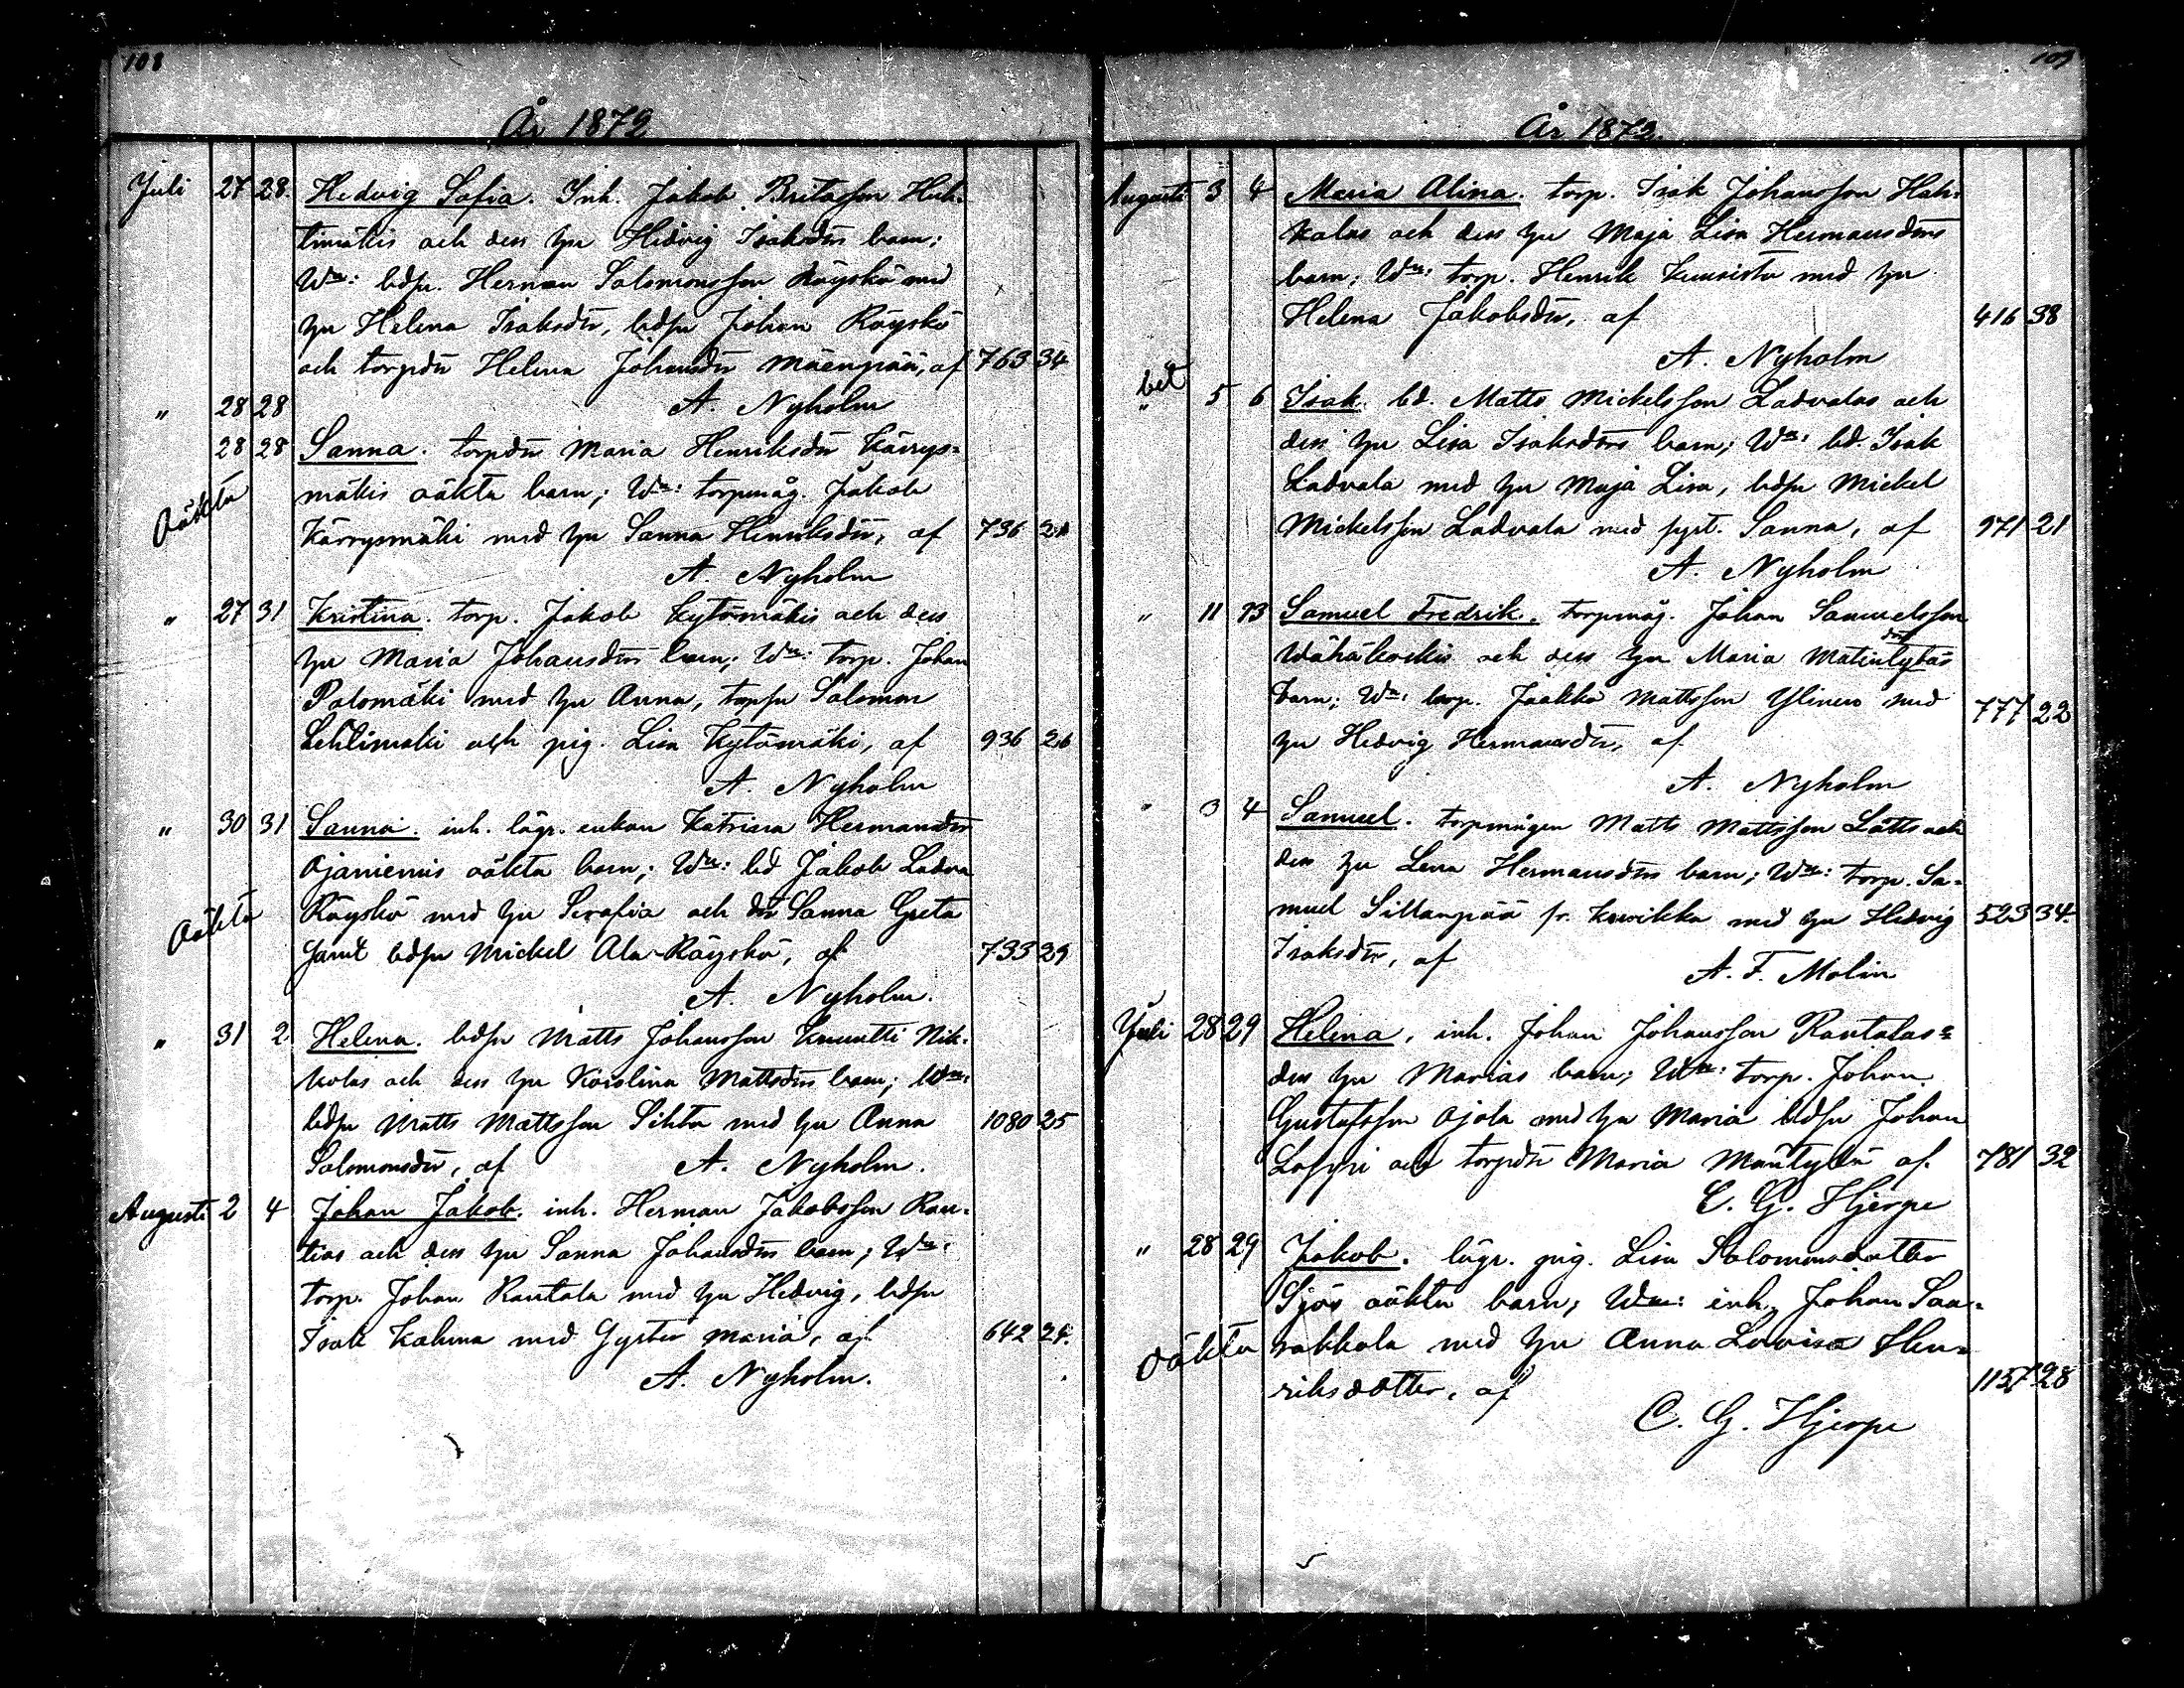 108
År 1872
Juli 27 28. Hedvig Sofia. Inh. Jakob Britasson Huh-
timäkis och dess hu Hedvig Isaksdrs barn;
Wn: bdsn. Herman Salomonsson Röyskö med
hu Helena Isaksdr, bdsn Johan Röyskö
och torpdr Helena Johansdr Mäenpää, af 763 34
" 28 28 A. Nyholm
28 28 Sanna. torpdr Maria Henriksdr Kärrys-
mäkis oäkta barn; Wn: torpmåg. Jakob
Oäkta
Kärrysmäki med hu Sanna Henriksdr, af 736 21
A. Nyholm
" 27 31 Kristina. torp. Jakob Kytömäkis och dess
hu Maria Johansdrs barn; Wn: torp. Johan
Palomäki med hu Anna, torpsn Salomon
Lehtimäki och pig. Lisa Kytömäki, af 936 26
A. Nyholm
" 30 31 Sanna. inh. lägr. enkan Katrina Hermansdr
Ojaniemis oäkta barn; Wn: bd Jakob Ladva
Oäkta Röyskö med hu Serafia och dr Sanna Greta
samt bdsn Mickel Ala-Röyskö, af 733 29
A. Nyholm.
" 31 2 Helena. bdsn Matts Johansson Knuutti Nik-
kolas och dess hu Karolina Mattsdrs barn; Wn:
bdsn Matts Mattsson Sihto med hu Anna 1080 25
Salomonsdr, af A. Nyholm.
Augusti 2 4 Johan Jakob. inh. Herman Jakobsson Ran-
tias och dess hu Sanna Johansdrs barn; Wn:
torp. Johan Rantala med hu Hedvig, bdsn
Isak Kahma med syster Maria, af 642 24.
A. Nyholm.
109
År 1872.
Augusti 3 4 Maria Alina. torp. Isak Johansson Hah-
kolas och dess hu Maja Lisa Hermansdrs
barn; Wn: torp. Henrik Kuusisto med hu
Helena Jakobsdr, af 416 38
A. Nyholm
bet
" 5 6 Isak. bd. Matts Mickelsson Ladvalas och
dess hu Lisa Isaksdrs barn; Wn: bd. Isak
Ladvala med hu Maja Lisa, bdsn Mickel
Mickelsson Ladvala med syst. Sanna, af 971 21
A. Nyholm
" 11 13 Samuel Fredrik. torpmåg. Johan Samuelsson
Wähäkoskis och dess hu Maria Matintytäs
barn; Wn: torp. Jaakko Mattsson Ylinen med
777 22
hu Hedvig Hermansdr, af
A. Nyholm
" 3 4 Samuel. torpmågen Matts Mattsson Lätts och
dess hu Lena Hermansdrs barn; Wn: torp. Sa-
muel Sillanpää fr. Kawikka med hu Hedvig 523 34.
Isaksdr, af
A. F. Molin
Juli 28 29 Helena, inh. Johan Johansson Rantalas o.
dess hu Marias barn; Wn: torp. Johan
Gustafsson Ojala med hu Maria bdsn Johan
och torpdr Maria Mäntylä af. 781 32
C. G. Hjerpe
" 28 29 Jakob. lägr. pig. Lisa Salomonsdotter
Sjös oäkta barn; Wn: inh. Johan Saa-
Oäkta rakkala med hu Anna Lovisa Hen-
riksdotter, af 1157 28
C. G. Hjerpe